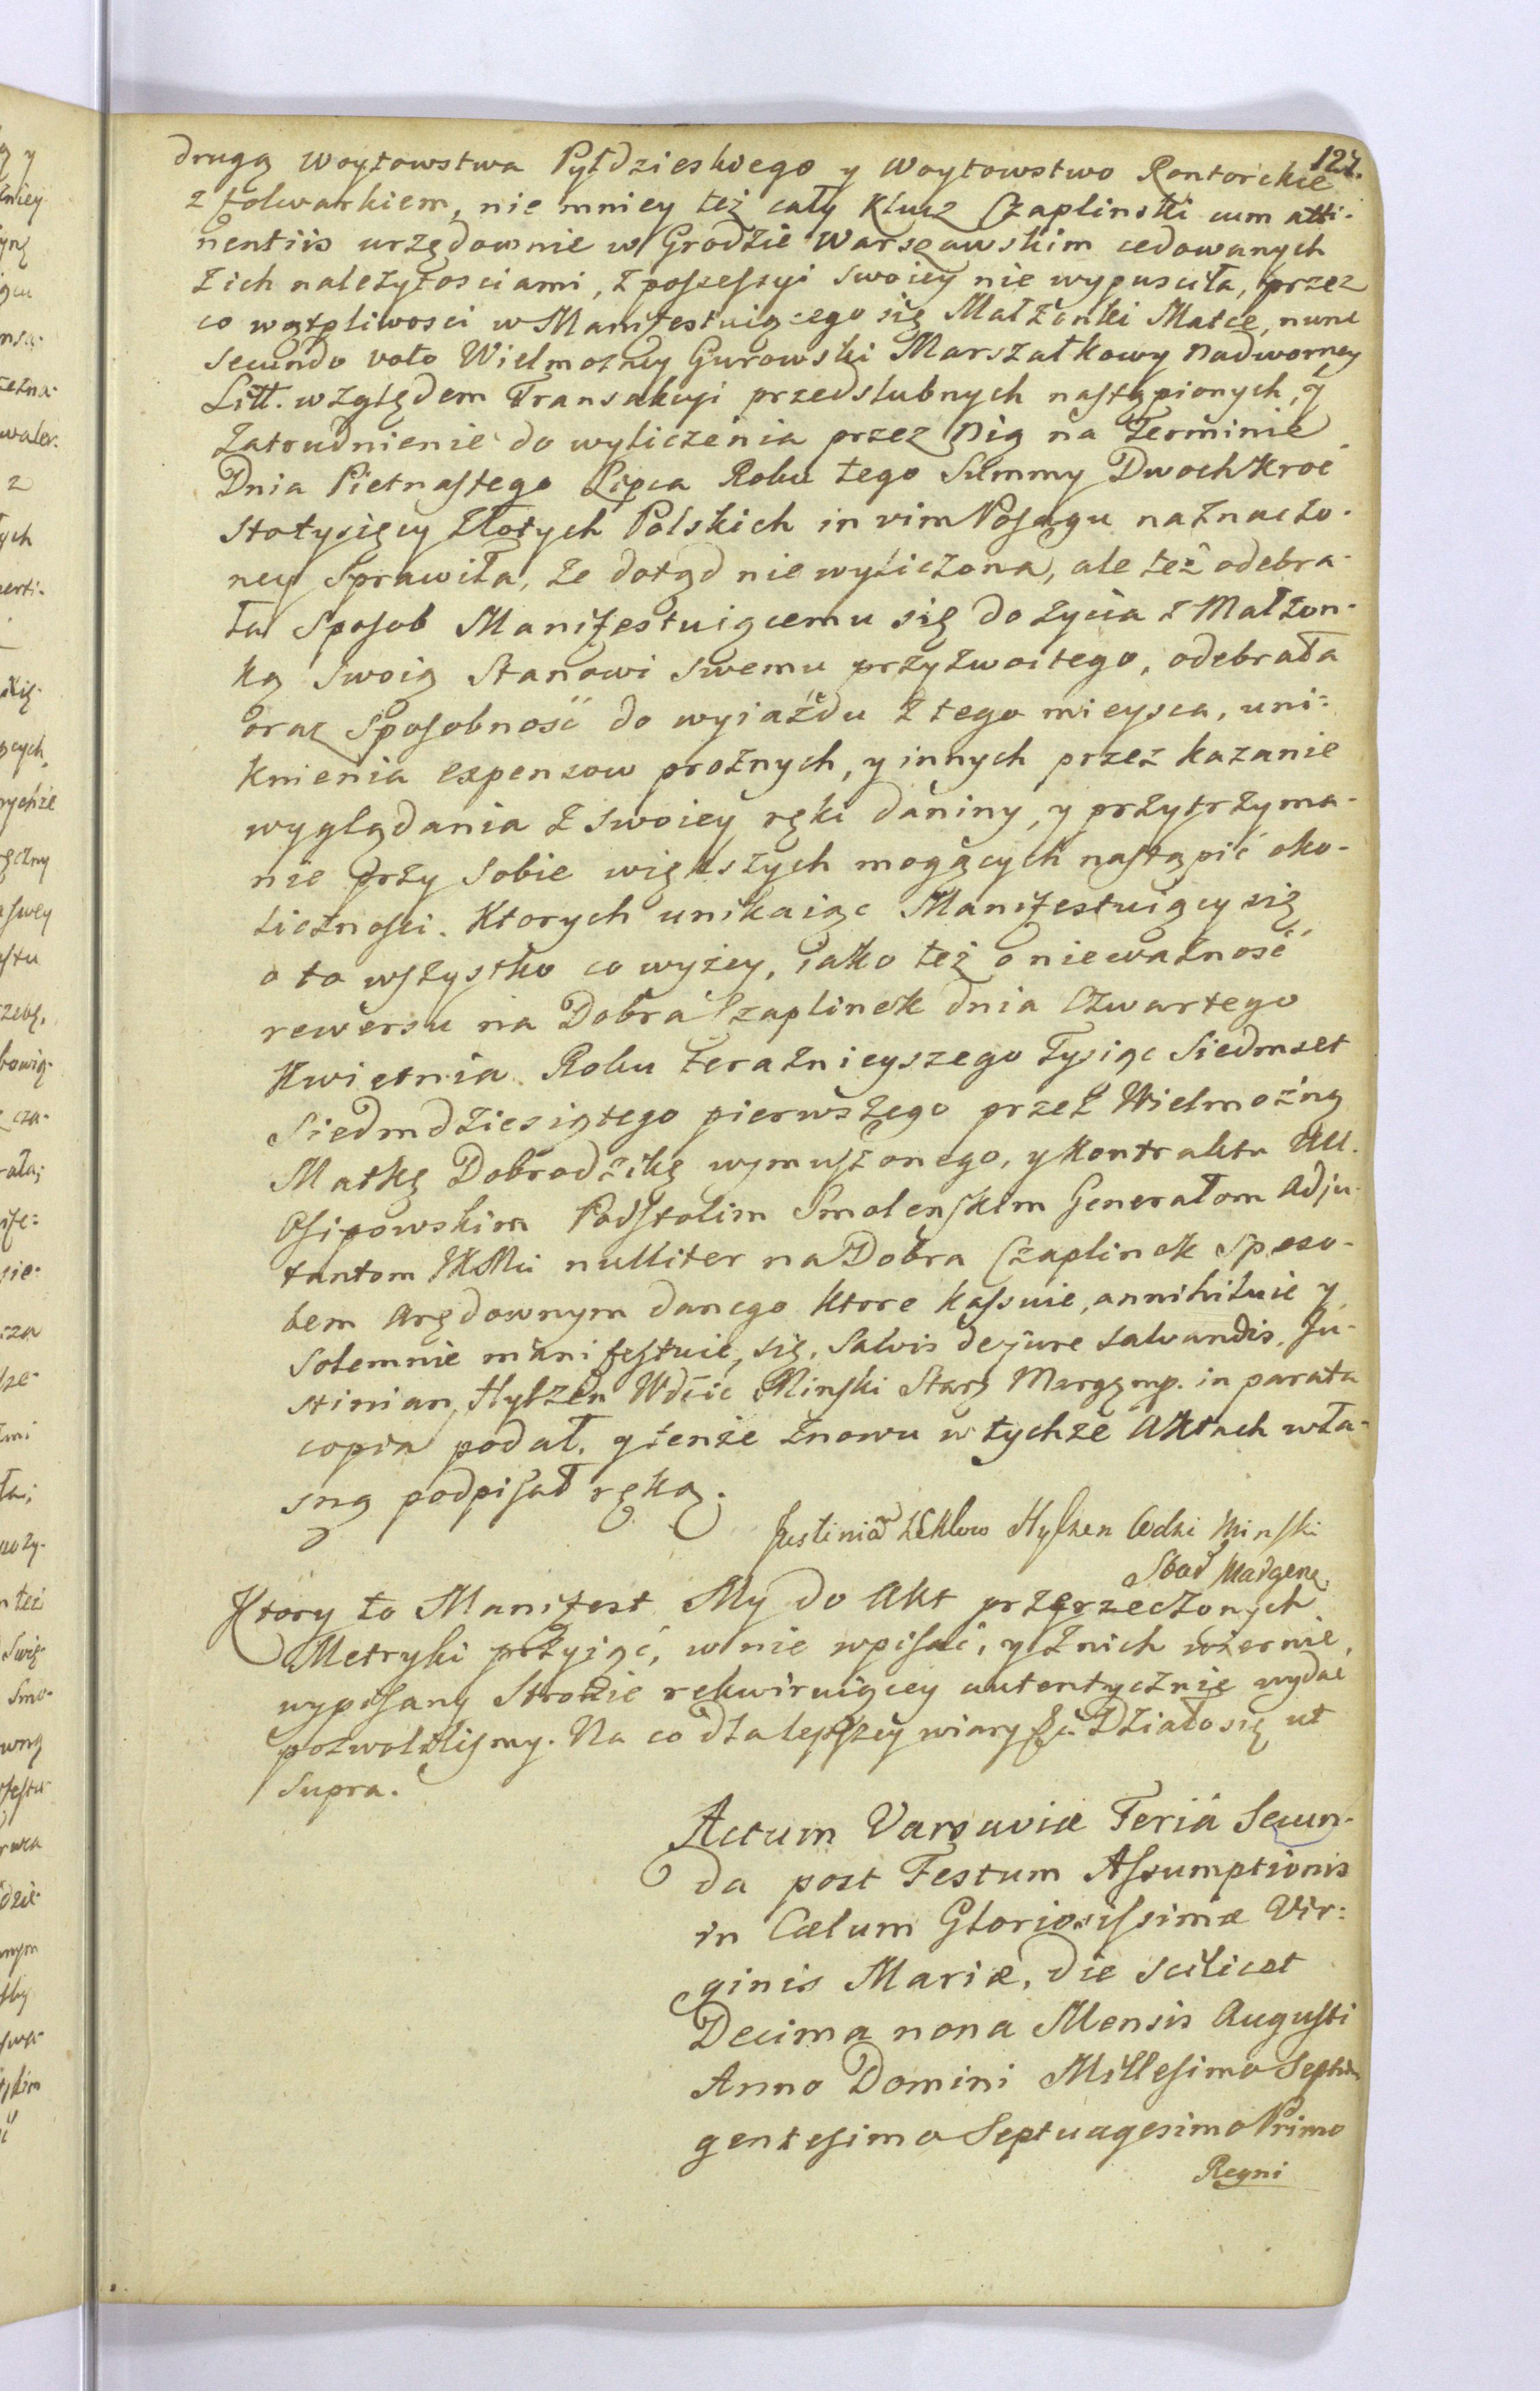 127.
drugą Woytowstwa Pyłdzieskiego y Woytowstwo Rontorckie
z folwarkiem, nie mniey też cały Klucz Czaplinski cum atti-
nentiis urzędownie w Grodzie Warszawskim cedowanych
z ich należytosciami, z possessyi swoiey nie wypusciła, przez
co wątpliwosci w Manifestuiącego się Małżonki Matce, nunc
secundo voto Wielmożney Gurowski Marszałkowy Nadworney
Litt. względem Transakcyi przedslubnych nastąpionych, y
zatrudnienie do wyliczenia przez Nię na Terminie
Dnia Pietnastego Lipca Roku tego Summy Dwochkroć
stotysięcy Złotych Polskich in vim Posagu naznaczo-
ney Sprawiła, że dotąd nie wyliczona, ale też odebra-
ła Sposob Manifestuiącemu się do życia z Małżon-
ką Swoią Stanowi Swemu przyzwoitego, odebrała
oraz Sposobność do wyiazdu z tego mieysca, uni-
knienia expensow prożnych, y innych przez kazanie
wyglądania z swoiey ręki daniny, y przytrzyma-
nie przy Sobie większych mogących nastąpić oko-
licznosci. Ktorych unikaiąc Manifestuiący się
o to wszystko co wyżey, iako też o nieważność
rewersu na Dobra Czaplinek dnia Czwartego
Kwietnia Roku terażnieyszego Tysiąc Siedmset
Siedmdziesiątego pierwszego przez Wielmożną
Matkę Dobrodzikę wymuszonego, y Kontraktu Ur.
Osipowskim Podstolim Smolenskim Generałom Adju-
tantom JKMci nulliter na Dobra Czaplinek Sposo-
bem Arędownym danego ktore kassuie, annihiluie y
solemnie manifestuie się, Salvis de jure salvandis. Ju-
stinian Hylzen Wdzic Minski Stars Margęmp. in parata
copia podał, y tenże znowu w tychże Aktach wła-
sną podpisał ręką.
Justinian Hylzen Wdzi Minski
Ktory to Manifest My do Akt przerzeczonych
Metryki przyiąć, w nie wpisać, y z nich wiernie
wypisany Stronie rekwiruiącey autentycznie wydać
pozwolilismy. Na co dla lepszey wiary &c. Działo się ut
supra.
Actum Varsaviæ Feriâ Secun-
da post Festum Assumptionis
in Cælum Gloriosissimæ Vir-
ginis Mariæ, die scilicet
Decima nona Mensis Augusti
Anno Domini Millesimo Septin
gentesimo Septuagesimo Primo
Regni